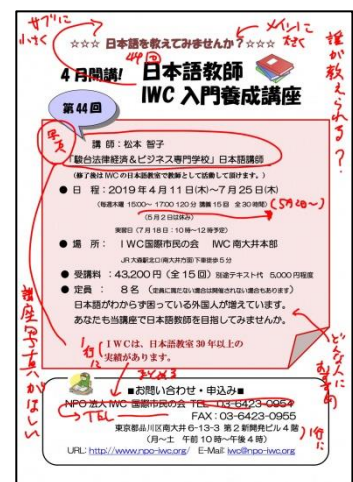 サブに
小さく
メインに
大きく
☆☆☆ 日本語を教えてみませんか？☆☆☆
誰が教えられる？
4月開講!
44回
日本語教師
IWC 入門養成講座
第44回
写真
講 師：松本 智子
「駿台法律経済＆ビジネス専門学校」日本語講師
(修了後は IWC の日本語教室で教師として活動して頂けます。)
● 日 程：2019 年 4 月 11 日(木)～7 月 25 日(木)
(毎週木曜 15:00～ 17:00 120 分 講義 15 回 全 30 時間)
(5月2日～)
(5 月 2 日は休み)
実習日 (7 月 18 日：10 時～12 時予定)
● 場 所： ＩＷＣ国際市民の会 IWC 南大井本部
JR 大森駅北口(南大井方面)下車徒歩 5 分
● 受講料 ：43,200 円（全 15 回） 別途テキスト代 5,000 円程度
● 定員 ： 8 名 (定員に満たない場合は開催されない場合もあります)
日本語がわからず困っている外国人が増えています。
あなたも当講座で日本語教師を目指してみませんか。
講座写真がほしい
1行に
ＩＷＣは、日本語教室 30 年以上の
実績があります。
まとめる
どんな人に
■お問い合わせ・申込み■
NPO 法人 IWC 国際市民の会 TEL 03-6423-0954
TEL
FAX：03-6423-0955
東京都品川区南大井 6-13-3 第 2 新開発ビル 4 階
(月～土 午前 10 時～午後 4 時)
1行に
URL: http://www-npo-iwc.org/ E-Mail: iwc@npo-iwc.org